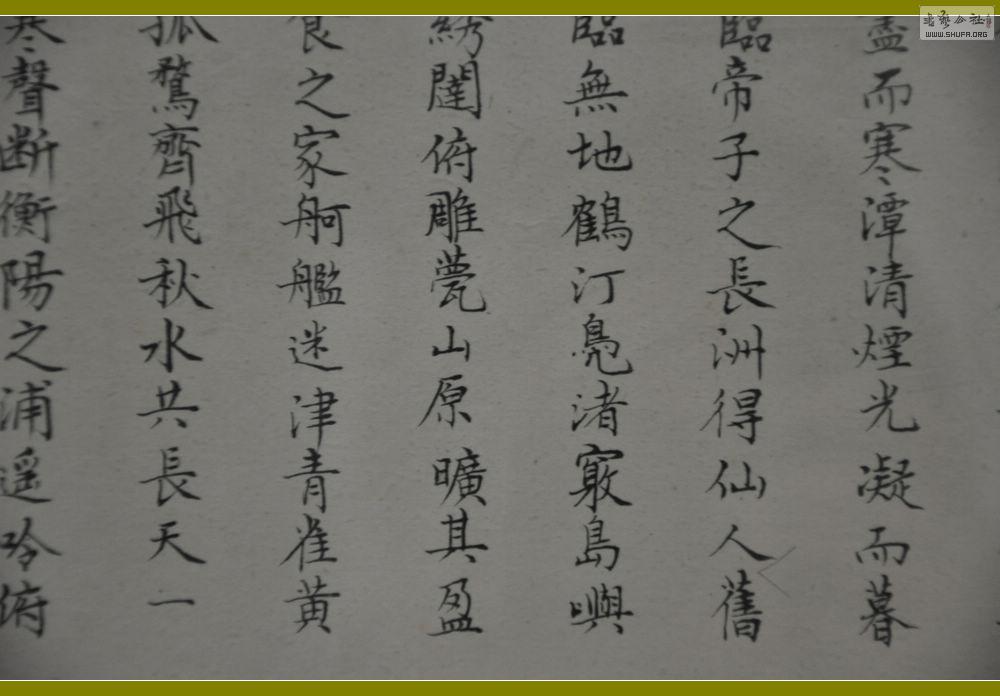 盡而寒潭清煙光凝而暮
臨帝子之長洲得仙人舊
臨無地鶴汀鳧渚竅島嶼
綉闥俯雕甍山原曠其盈
食之家舸艦迷津青雀黄
孤鶩齊飛秋水共長天一
寒聲断衡陽之浦遥吟俯
书艺公社
WWW.SHUFA.ORG